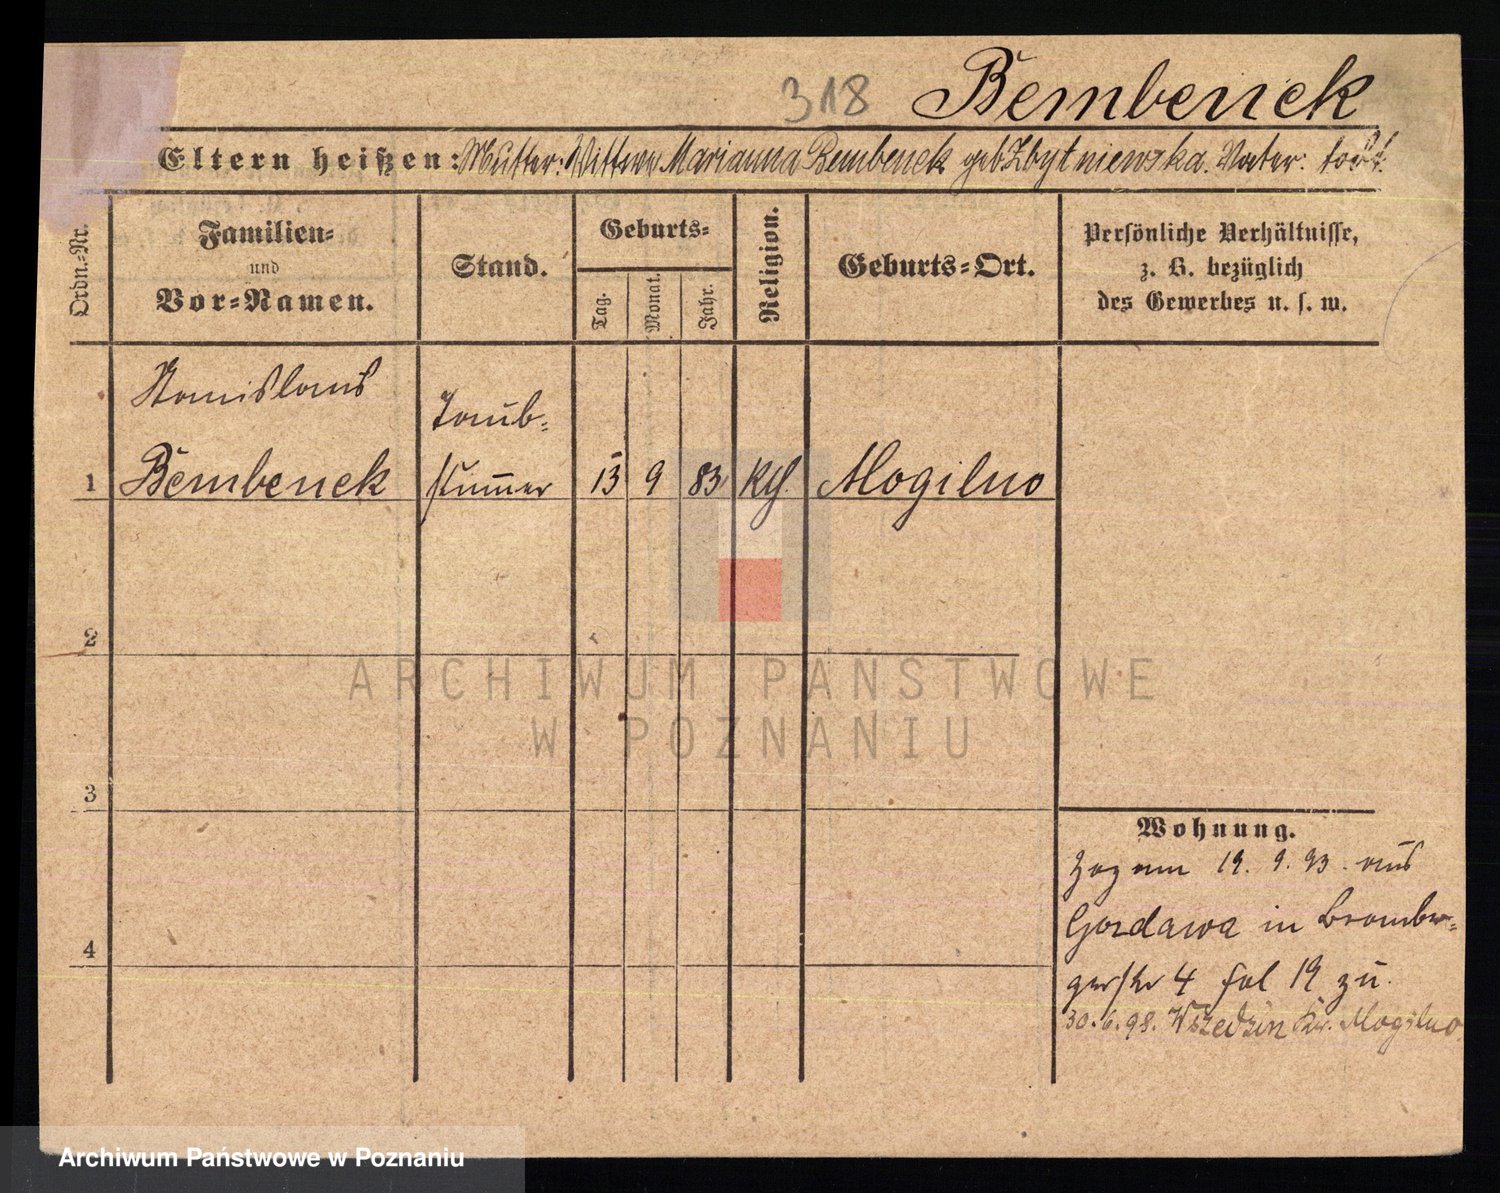 318 Bembenek
Eltern heißen: Mutter: Wittwe Marianna Bembenek geb Zbytniewska. Vater: todt.
Ordn.-Nr.
Familien-
und
Vor-Namen.
Stand.
Geburts-
Tag.
Monat.
Jahr.
Religion.
Geburts-Ort.
Persönliche Verhältnisse,
z. B. bezüglich
des Gewerbes u. s. w.
Stanislaus
Taub-
1 Bembenek stummer 13 9 83 Kth. Mogilno
2
3
4
Wohnung.
Zog am 19. 9. 93. aus
Gordawa in Bromber-
gerstr 4 fol 19 zu.
30.6.98. Wszedzin Kr. Mogilno
ARCHIWUM PAŃSTWOWE
W POZNANIU
Archiwum Państwowe w Poznaniu